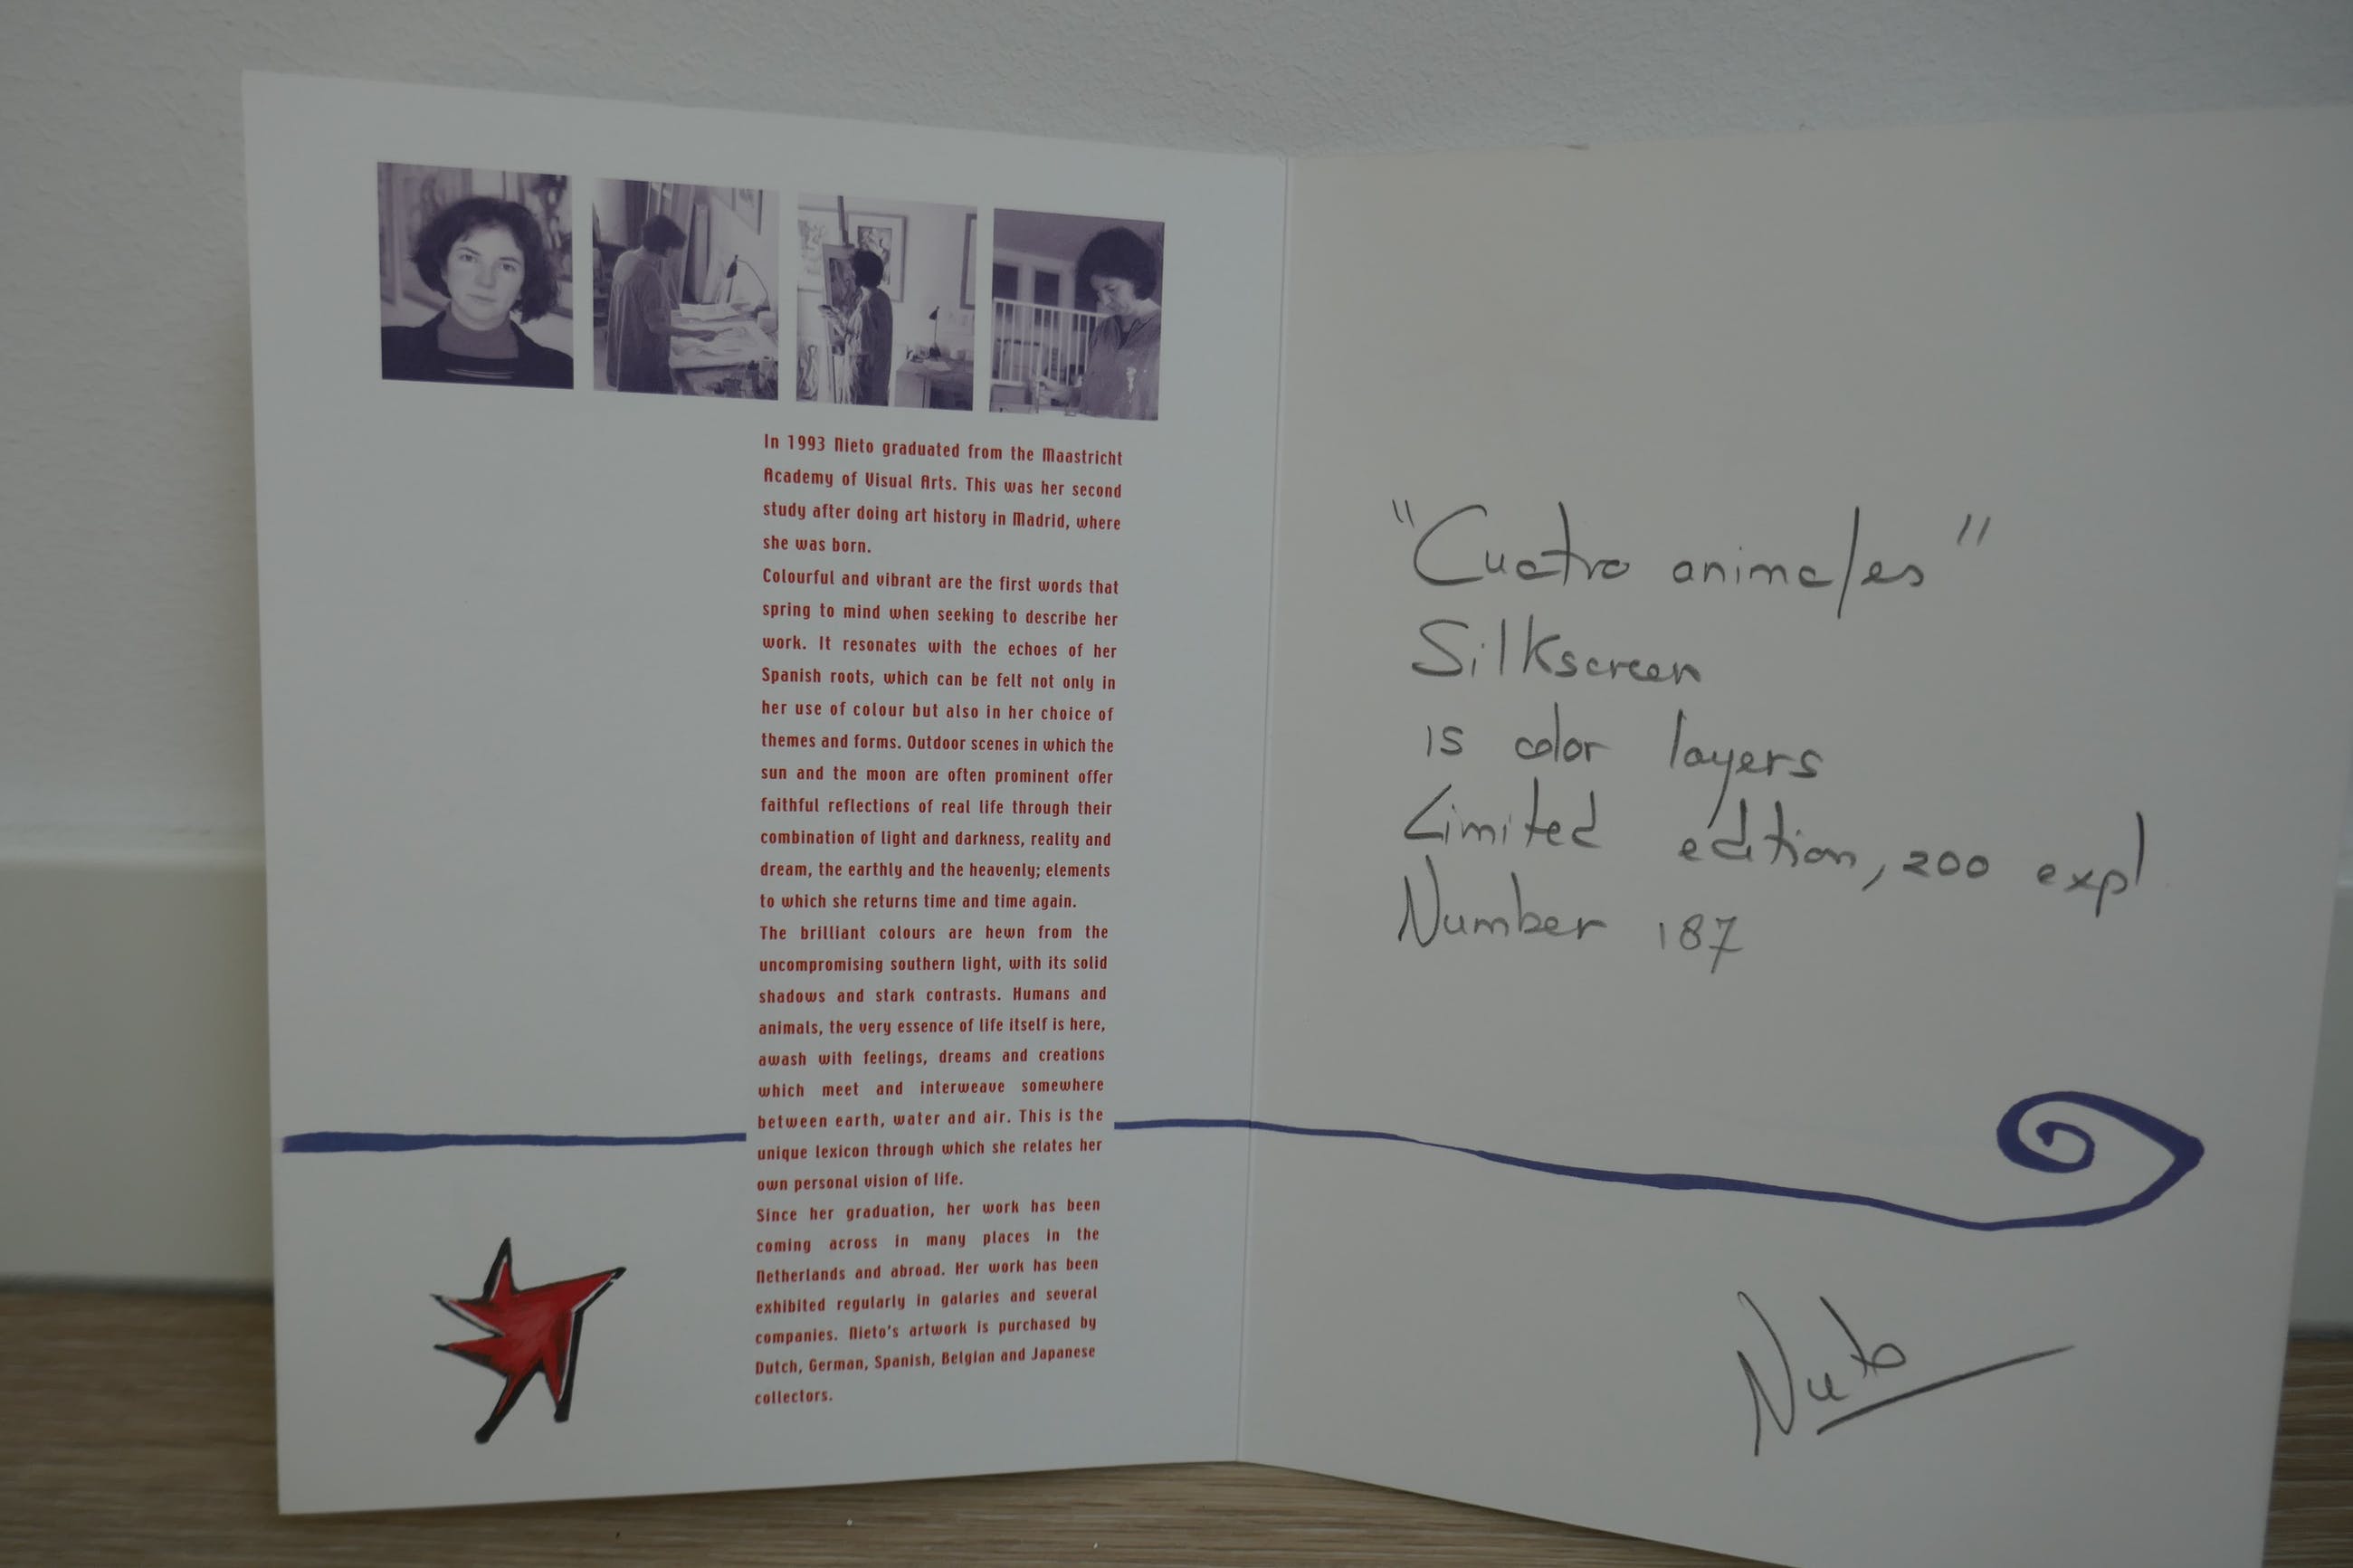 In 1993 Nieto graduated from the Maastricht
Academy of Visual Arts. This was her second
study after doing art history in Madrid, where
she was born.
Colourful and vibrant are the first words that
spring to mind when seeking to describe her
work. It resonates with the echoes of her
Spanish roots, which can be felt not only in
her use of colour but also in her choice of
themes and forms. Outdoor scenes in which the
sun and the moon are often prominent offer
faithful reflections of real life through their
combination of light and darkness, reality and
dream, the earthly and the heavenly; elements
to which she returns time and time again.
The brilliant colours are hewn from the
uncompromising southern light, with its solid
shadows and stark contrasts. Humans and
animals, the very essence of life itself is here,
awash with feelings, dreams and creations
which meet and interweave somewhere
between earth, water and air. This is the
unique lexicon through which she relates her
own personal vision of life.
Since her graduation, her work has been
coming across in many places in the
Netherlands and abroad. Her work has been
exhibited regularly in galaries and several
companies. Nieto's artwork is purchased by
Dutch, German, Spanish, Belgian and Japanese
collectors.
"Cuatro animales"
Silkscreen
15 color layers
Limited edition, 200 expl
Number 187
Nieto